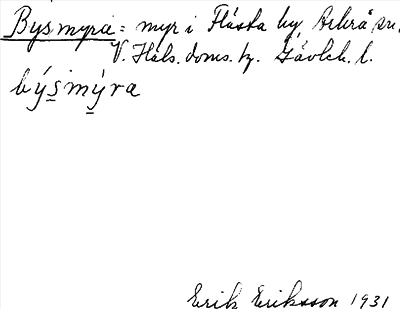 Bysmyra = myr i Flästa by, Arbrå sn.
V. Häls. doms. hy. Gävleb. l.
býsmýra
Erik Eriksson 1931